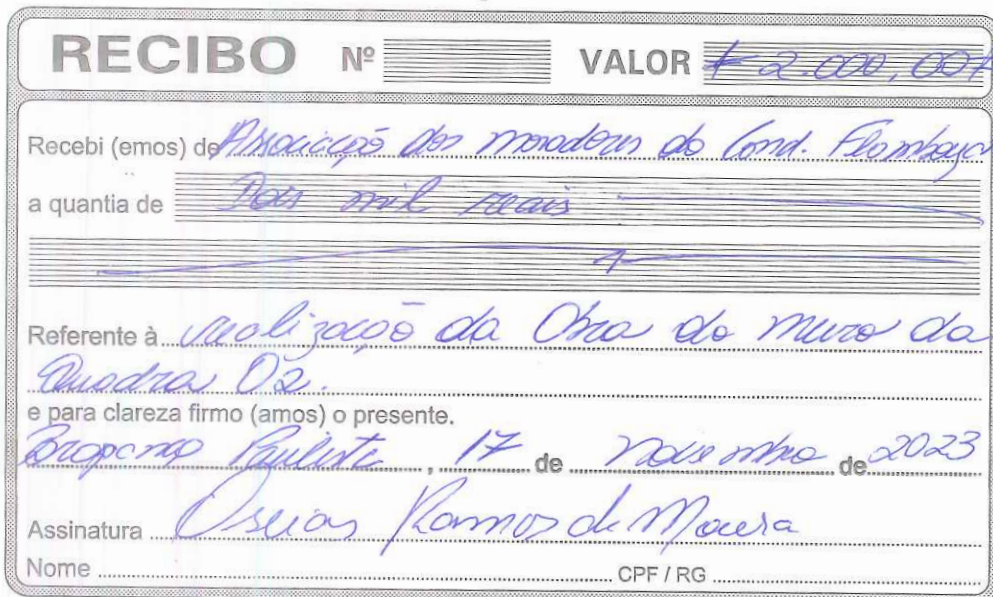 RECIBO Nº VALOR # 2.000,00 #
Recebi (emos) de Associação dos moradores do Cond. Flamboyã
a quantia de Dois mil reais
Referente à realização da Obra do muro da
Quadra 02.
e para clareza firmo (amos) o presente.
Bragança Paulista, 17 de novembro de 2023
Assinatura Oseias Ramos de Moura
Nome CPF / RG